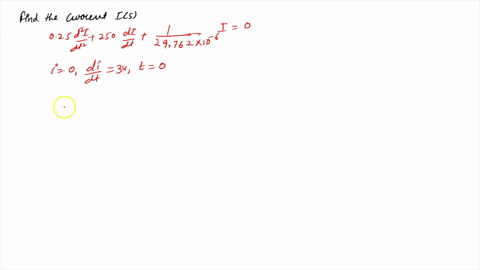 Find the Current I(s)
0.25 d²I/dt² + 250 dI/dt + 1/(29.762×10⁻⁶) I = 0
i=0, di/dt = 34, t=0